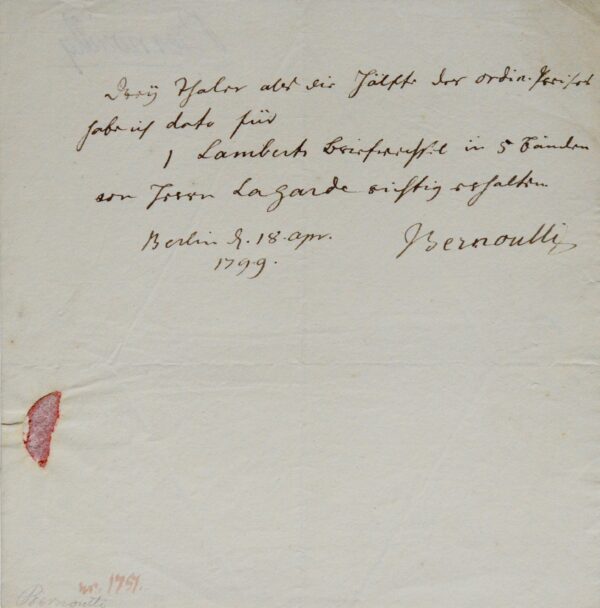 Drey Thaler als die Hälfte des ordin. Preises
habe ich dato für
1 Lamberts Briefwechsel in 5 Bänden
von Herrn Lagarde richtig erhalten
Berlin d. 18. Apr.
1799.
JBernoulli
nr. 1751.
Bernoulli